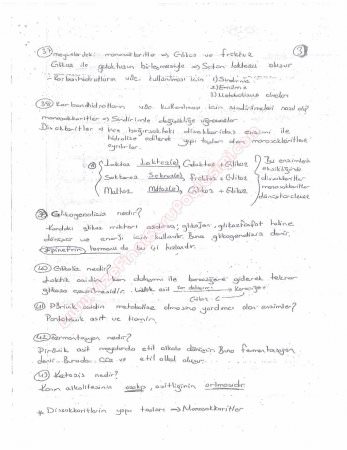 37) meyvelerdeki monosakkaritler → Glikoz ve fruktoz
3
Glikoz ile galaktozun birleşmesiyle → Sütün laktozu oluşur
- Karbonhidratların vücutta kullanılması için 1) Sindirim
2) Emilim
3) Metabolizma olmalıdır
38) Karbonhidratların vücutta kullanılması için sindirilmeleri nasıl olur
monosakkaritler → Sindirimde değişikliğe uğramazlar
Disakkaritler → ince bağırsaktaki disakkaridaz enzimi ile
hidrolize edilerek yapı taşları olan monosakkaritlere
ayrılırlar.
* Laktoz Laktaz(e) Galaktoz + Glikoz
Sakkaroz Sakkaraz(e) fruktoz + Glikoz
Maltoz Maltaz(e) Glikoz + Glikoz
Bu enzimlerin
eksikliğinde
disakkaritler
monosakkaritlere
dönüştürülemez
39) Glikogenoliz nedir?
Kandaki glikoz miktarı azalırsa; glikojen, glikozfosfat haline
dönüşür ve enerji için kullanılır. Buna glikogenoliz denir,
Epinefrin hormonu da bu işi hızlandırır.
40) Glikoliz nedir?
Laktik asidin kan dolaşımı ile karaciğere giderek tekrar
glikoza çevrilmesidir. Laktik asit kan dolaşımı → Karaciğer
Glikoz ←
41) Pürivik asidin metabolize olmasına yardımcı olan enzimler?
Pantotenik asit ve tiamin
42) Fermantasyon nedir?
Pirüvik asit mayalarda etil alkole dönüşür. Buna fermantasyon
denir. Burada CO2 ve etil alkol oluşur.
43) Ketozis nedir?
Kanın alkalitesinin azalıp, asitliğinin artmasıdır
* Disakkaritlerin yapı taşları → Monosakkaritler